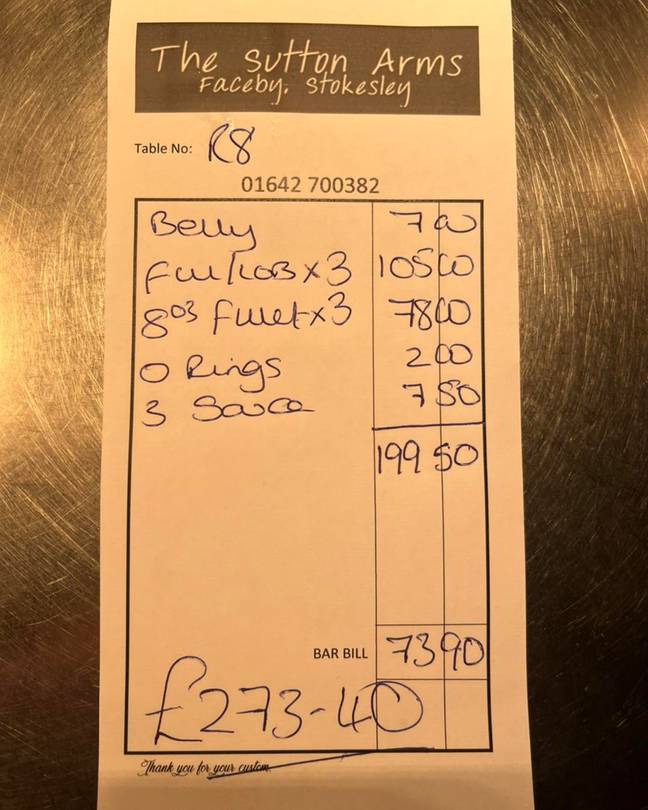 The Sutton Arms
Faceby, Stokesley
Table No: R8
01642 700382
Belly 7 00
Fill/LOB x 3 105 00
8oz Fillet x 3 78 00
O Rings 2 00
3 Sauce 7 50
199 50
BAR BILL 73 90
£273-40
Thank you for your custom.